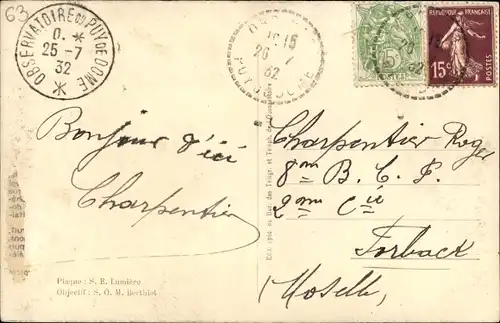 63
OBSERVATOIRE DU PUY DE DOME
25-7
32
15
26 7
32
PUY DE DOME
5
RÉPUBLIQUE FRANÇAISE
15c
POSTES
Bonjour d'ici
Charpentier
Charpentier Roger
8me B. C. P.
2me Cie
Forback
Moselle
Plaque : S. E. Lumière
Objectif : S. O. M. Berthiot